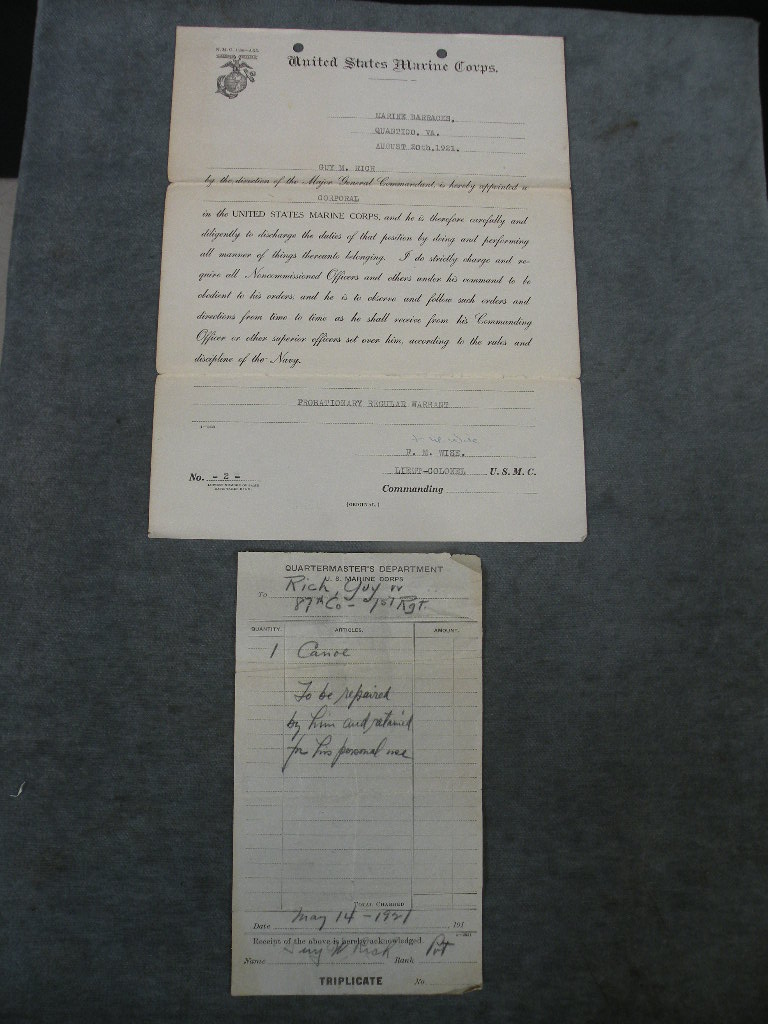 United States Marine Corps.
MARINE BARRACKS,
QUANTICO, VA.
AUGUST 20th, 1921.
GUY M. RICH
by the direction of the Major General Commandant, is hereby appointed a
CORPORAL
in the UNITED STATES MARINE CORPS, and he is therefore carefully and
diligently to discharge the duties of that position by doing and performing
all manner of things thereunto belonging. I do strictly charge and re-
quire all Noncommissioned Officers and others under his command to be
obedient to his orders, and he is to observe and follow such orders and
directions from time to time as he shall receive from his Commanding
Officer or other superior officers set over him, according to the rules and
discipline of the Navy.
PROBATIONARY REGULAR WARRANT
F. M. WISE,
No. - 2 - LIEUT-COLONEL U. S. M. C.
Commanding
(ORIGINAL)
QUARTERMASTER'S DEPARTMENT
U. S. MARINE CORPS
To Rich, Guy W
87th Co - 1st Rgt.
QUANTITY. ARTICLES. AMOUNT.
1 Canoe
To be repaired
by him and retained
for his personal use
TOTAL CHARGED
Date May 14 - 1921 191
Receipt of the above is hereby acknowledged.
Name Guy W Rich Rank Pvt
TRIPLICATE No.